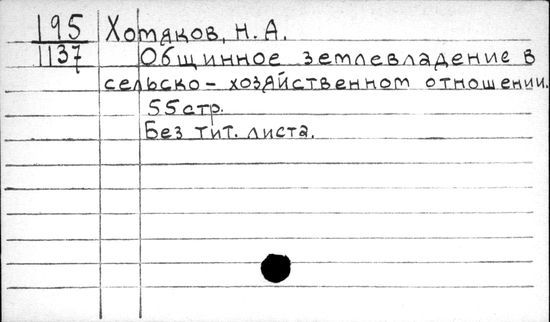 195 Хотяков, Н. А.
1137 Общинное землевладение в
сельско-хозяйственном отношении.
55 стр.
Без тит. листа.